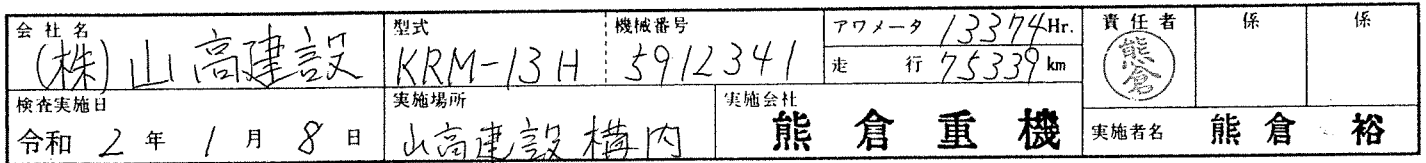 会社名 (株)山高建設
型式 KRM-13H
機械番号 5912341
アワメータ 13374Hr.
走行 75339km
責任者 熊倉
係
係
検査実施日 令和2年1月8日
実施場所 山高建設構内
実施会社 熊倉重機
実施者名 熊倉 裕